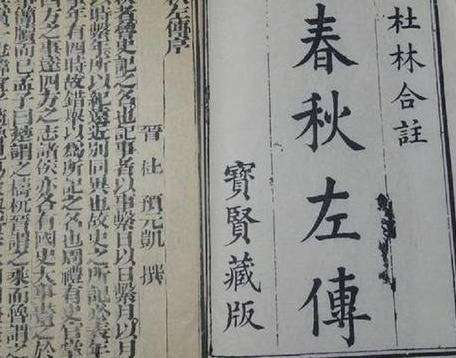 杜林合註
春秋左傳
寶賢藏版
左傳序
晉 杜 預元凱 撰
者魯史記之名也記事者以事繫日以日繫月以月
繫年所以紀遠近別同異也故史之所記必表年
年有四時故錯舉以爲所記之名也周禮有史官掌
四方之事達四方之志諸侯亦各有國史大事書之於
簡牘而已孟子曰楚謂之檮杌晉謂之乘而魯謂之